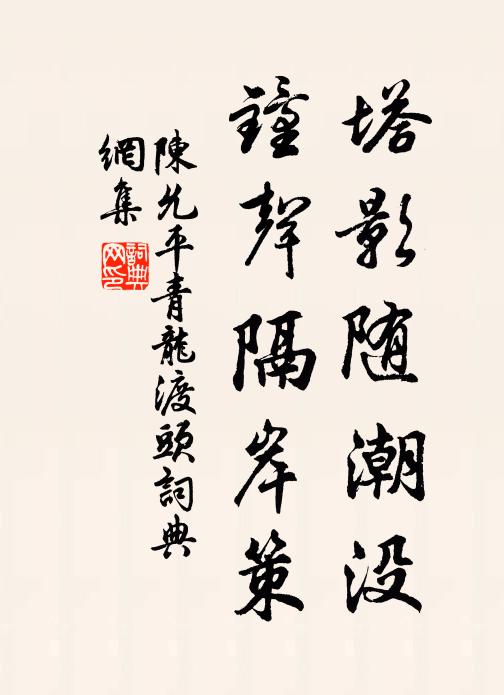 塔影随潮没
鐘聲隔岸策
陳允平青龍渡頭詞典
網集
詞典
网印